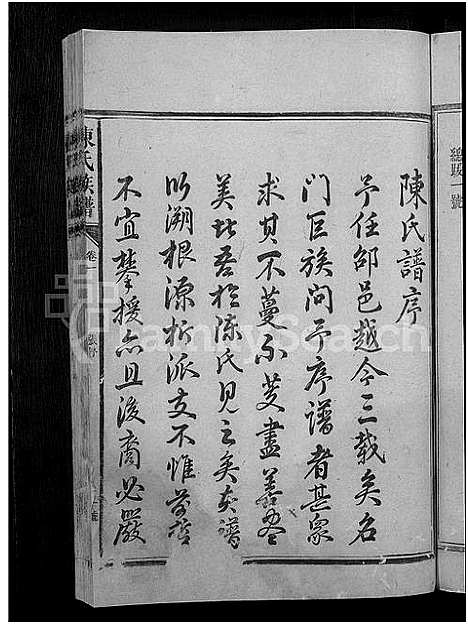 總跋一號
陳氏譜序
予任邵邑越今三載矣名
門巨族問予序譜者甚衆
求其不蔓不支盡善盡
美北吾於陈氏見之矣夫譜
以溯根源析派支不惟前哲
不宜攀援而且後裔必嚴
陳氏族譜
卷一
FamilySearch